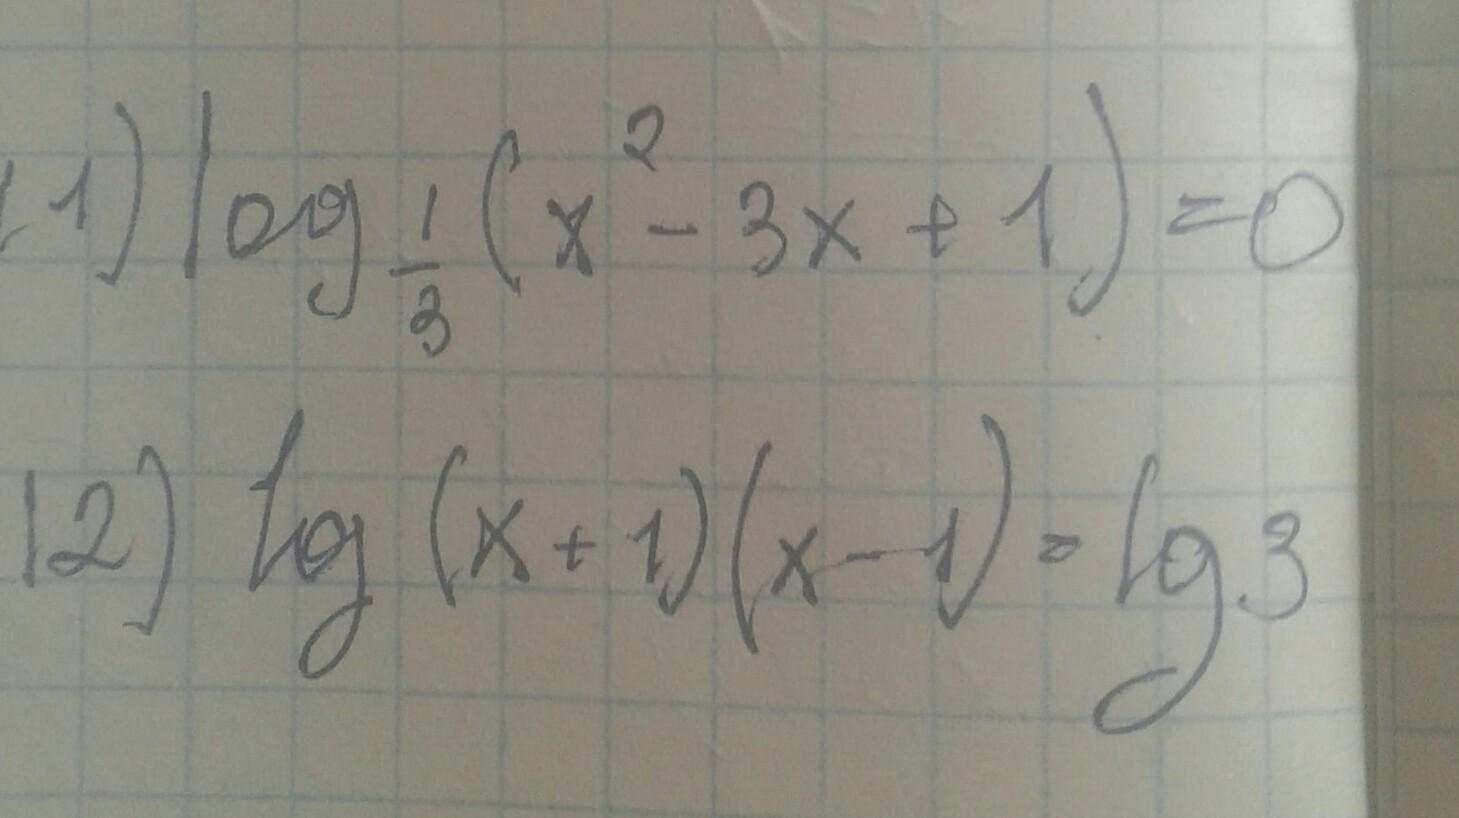 11) log_{1/3} (x² - 3x + 1) = 0
12) lg (x + 1)(x - 1) = lg 3